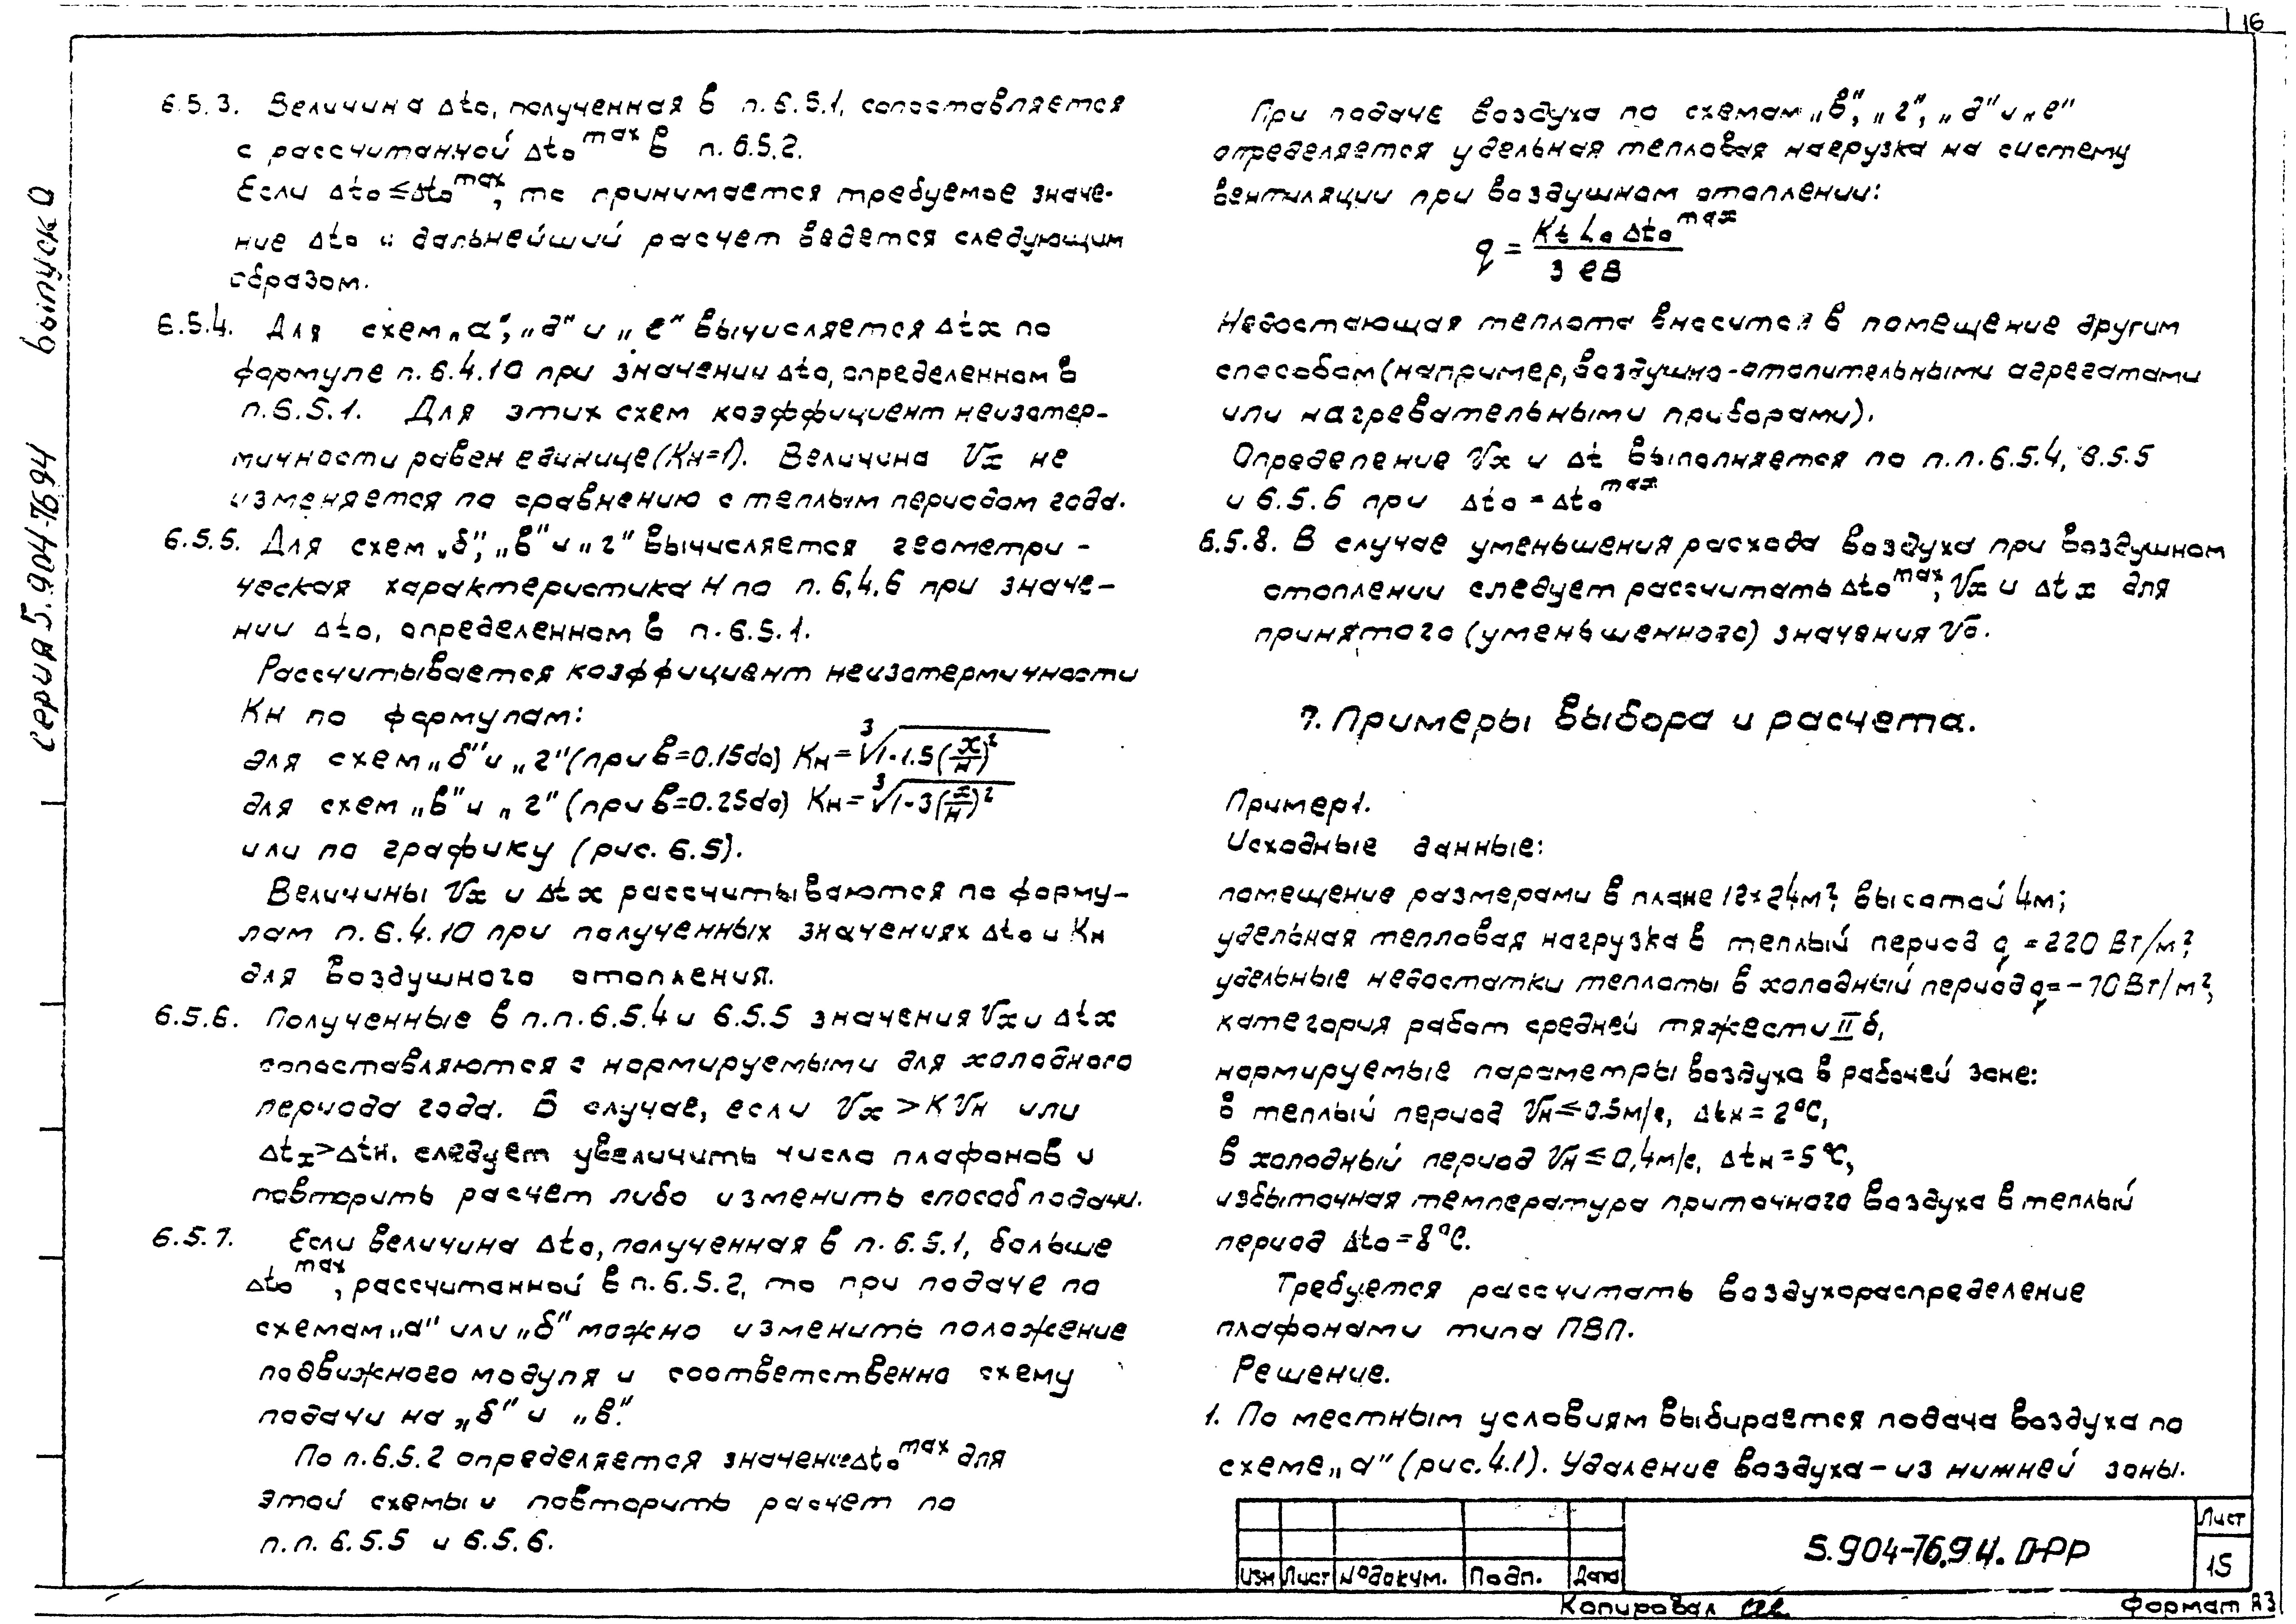 16
серия 5.904-76.94 выпуск 0
6.5.3. Величина Δt₀, полученная в п.6.5.1, сопоставляется
с рассчитанной Δt₀ᵐᵃˣ в п. 6.5.2.
Если Δt₀ ≤ Δt₀ᵐᵃˣ, то принимается требуемое значе-
ние Δt₀ и дальнейший расчет ведется следующим
образом.
6.5.4. Для схем „а", „д" и „е" вычисляется Δtx по
формуле п.6.4.10 при значении Δt₀, определенном в
п.6.5.1. Для этих схем коэффициент неизотер-
мичности равен единице (Кн=1). Величина Vx не
изменяется по сравнению с теплым периодом года.
6.5.5. Для схем „б", „в" и „г" вычисляется геометри-
ческая характеристика Н по п. 6.4.6 при значе-
нии Δt₀, определенном в п.6.5.1.
Рассчитывается коэффициент неизотермичности
Кн по формулам:
для схем „б" и „г" (при в=0.15d₀) Кн = ∛(1-1.5(x/н)²)
для схем „в" и „г" (при в=0.25d₀) Кн = ∛(1-3(x/н)²)
или по графику (рис. 6.5).
Величины Vx и Δtx рассчитываются по форму-
лам п.6.4.10 при полученных значениях Δt₀ и Кн
для воздушного отопления.
6.5.6. Полученные в п.п.6.5.4 и 6.5.5 значения Vx и Δtx
сопоставляются с нормируемыми для холодного
периода года. В случае, если Vx > KVн или
Δtx > Δtн, следует увеличить число плафонов и
повторить расчет либо изменить способ подачи.
6.5.7. Если величина Δt₀, полученная в п.6.5.1, больше
Δt₀ᵐᵃˣ, рассчитанной в п.6.5.2, то при подаче по
схемам „а" или „б" можно изменить положение
подвижного модуля и соответственно схему
подачи на „б" и „в".
По п.6.5.2 определяется значение Δt₀ᵐᵃˣ для
этой схемы и повторить расчет по
п.п. 6.5.5 и 6.5.6.
При подаче воздуха по схемам „в", „г", „д" и „е"
определяется удельная тепловая нагрузка на систему
вентиляции при воздушном отоплении:
q = Kt L₀ Δt₀ᵐᵃˣ / 3 ℓВ
Недостающая теплота вносится в помещение другим
способом (например, воздушно-отопительными агрегатами
или нагревательными приборами).
Определение Vx и Δt выполняется по п.п.6.5.4, 6.5.5
и 6.5.6 при Δt₀ = Δt₀ᵐᵃˣ
6.5.8. В случае уменьшения расхода воздуха при воздушном
отоплении следует рассчитать Δt₀ᵐᵃˣ, Vx и Δtx для
принятого (уменьшенного) значения V₀.
7. Примеры выбора и расчета.
Пример 1.
Исходные данные:
помещение размерами в плане 12×24м², высотой 4м;
удельная тепловая нагрузка в теплый период q = 220 Вт/м²,
удельные недостатки теплоты в холодный период q = -70 Вт/м²,
категория работ средней тяжести II б,
нормируемые параметры воздуха в рабочей зоне:
в теплый период Vн ≤ 0.5м/с, Δtн = 2°С,
в холодный период Vн ≤ 0,4м/с, Δtн = 5°С,
избыточная температура приточного воздуха в теплый
период Δt₀ = 8°С.
Требуется рассчитать воздухораспределение
плафонами типа ПВП.
Решение.
1. По местным условиям выбирается подача воздуха по
схеме „а" (рис.4.1). Удаление воздуха – из нижней зоны.
Изм Лист №докум. Подп. Дата
5.904-76.94.0-РР
Лист
15
Копировал
Формат А3